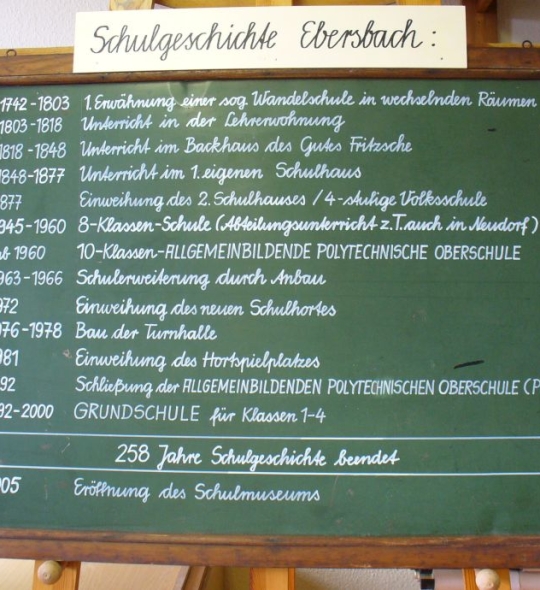 Schulgeschichte Ebersbach :
1742-1803 1. Erwähnung einer sog. Wandelschule in wechselnden Räumen
1803-1818 Unterricht in der Lehrerwohnung
1818-1848 Unterricht im Backhaus des Gutes Fritzsche
1848-1877 Unterricht im 1. eigenen Schulhaus
877 Einweihung des 2. Schulhauses / 4-stufige Volksschule
945-1960 8-Klassen-Schule (Abteilungsunterricht z.T. auch in Neudorf)
ab 1960 10-Klassen-ALLGEMEINBILDENDE POLYTECHNISCHE OBERSCHULE
963-1966 Schulerweiterung durch Anbau
972 Einweihung des neuen Schulhortes
976-1978 Bau der Turnhalle
981 Einweihung des Hortspielplatzes
92 Schließung der ALLGEMEINBILDENDEN POLYTECHNISCHEN OBERSCHULE (P
92-2000 GRUNDSCHULE für Klassen 1-4
258 Jahre Schulgeschichte beendet
005 Eröffnung des Schulmuseums